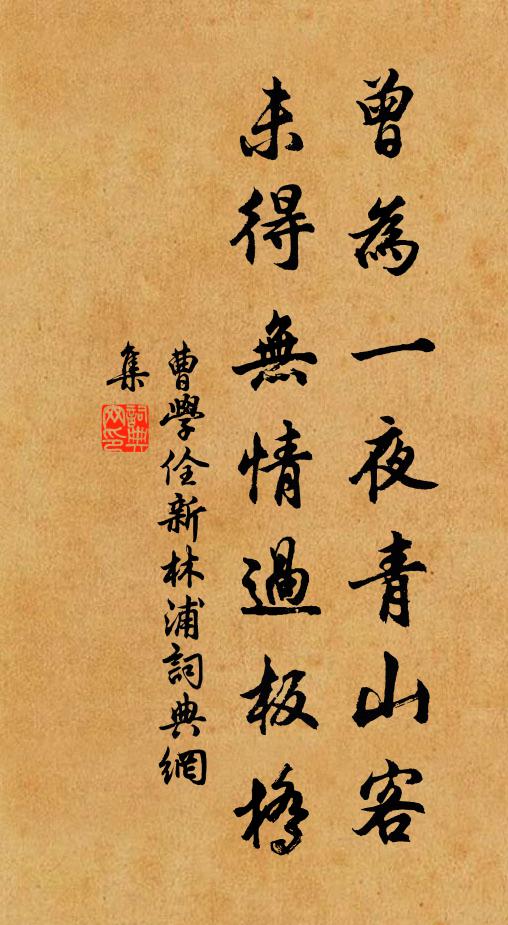 曾為一夜青山客
未得無情過板橋
曹學佺新林浦詞典網
集
詞典網印